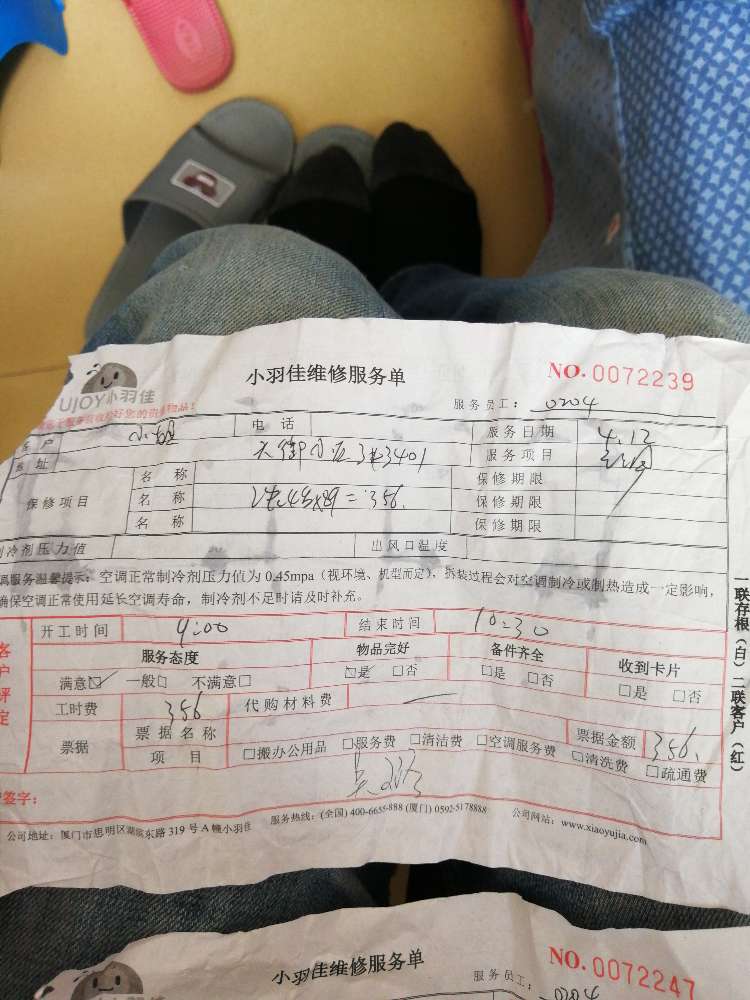 UJOY小羽佳
小羽佳维修服务单
NO. 0072239
服务员工: 0204
客户 小姐 电话 服务日期 4.12
地址 3#3401 服务项目
保修项目 名称 保修期限
名称 4台x89=356. 保修期限
名称 保修期限
制冷剂压力值 出风口温度
服务温馨提示: 空调正常制冷剂压力值为 0.45mpa (视环境、机型而定), 拆装过程会对空调制冷或制热造成一定影响,
确保空调正常使用延长空调寿命, 制冷剂不足时请及时补充。
开工时间 9:00 结束时间 10:30
客户评定
服务态度 物品完好 备件齐全 收到卡片
满意☑ 一般□ 不满意□ □是 □否 □是 □否 □是 □否
工时费 356 代购材料费
票据 票据名称 票据金额 356.
项目 □搬办公用品 □服务费 □清洁费 □空调服务费 □清洗费 □疏通费
签字:
公司地址: 厦门市思明区湖滨东路 319 号 A 幢小羽佳 服务热线: (全国) 400-6655-888 (厦门) 0592-5178888 公司网站: www.xiaoyujia.com
一联存根(白) 二联客户(红)
小羽佳维修服务单
NO. 0072247
服务员工: 0204
小羽佳